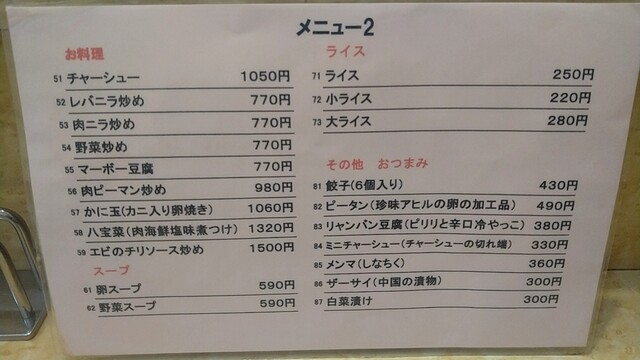 メニュー2
お料理
51 チャーシュー 1050円
52 レバニラ炒め 770円
53 肉ニラ炒め 770円
54 野菜炒め 770円
55 マーボー豆腐 770円
56 肉ピーマン炒め 980円
57 かに玉(カニ入り卵焼き) 1060円
58 八宝菜(肉海鮮塩味煮つけ) 1320円
59 エビのチリソース炒め 1500円
スープ
61 卵スープ 590円
62 野菜スープ 590円
ライス
71 ライス 250円
72 小ライス 220円
73 大ライス 280円
その他 おつまみ
81 餃子(6個入り) 430円
82 ピータン(珍味アヒルの卵の加工品) 490円
83 リャンバン豆腐(ピリリと辛口冷やっこ) 380円
84 ミニチャーシュー(チャーシューの切れ端) 330円
85 メンマ(しなちく) 360円
86 ザーサイ(中国の漬物) 300円
87 白菜漬け 300円